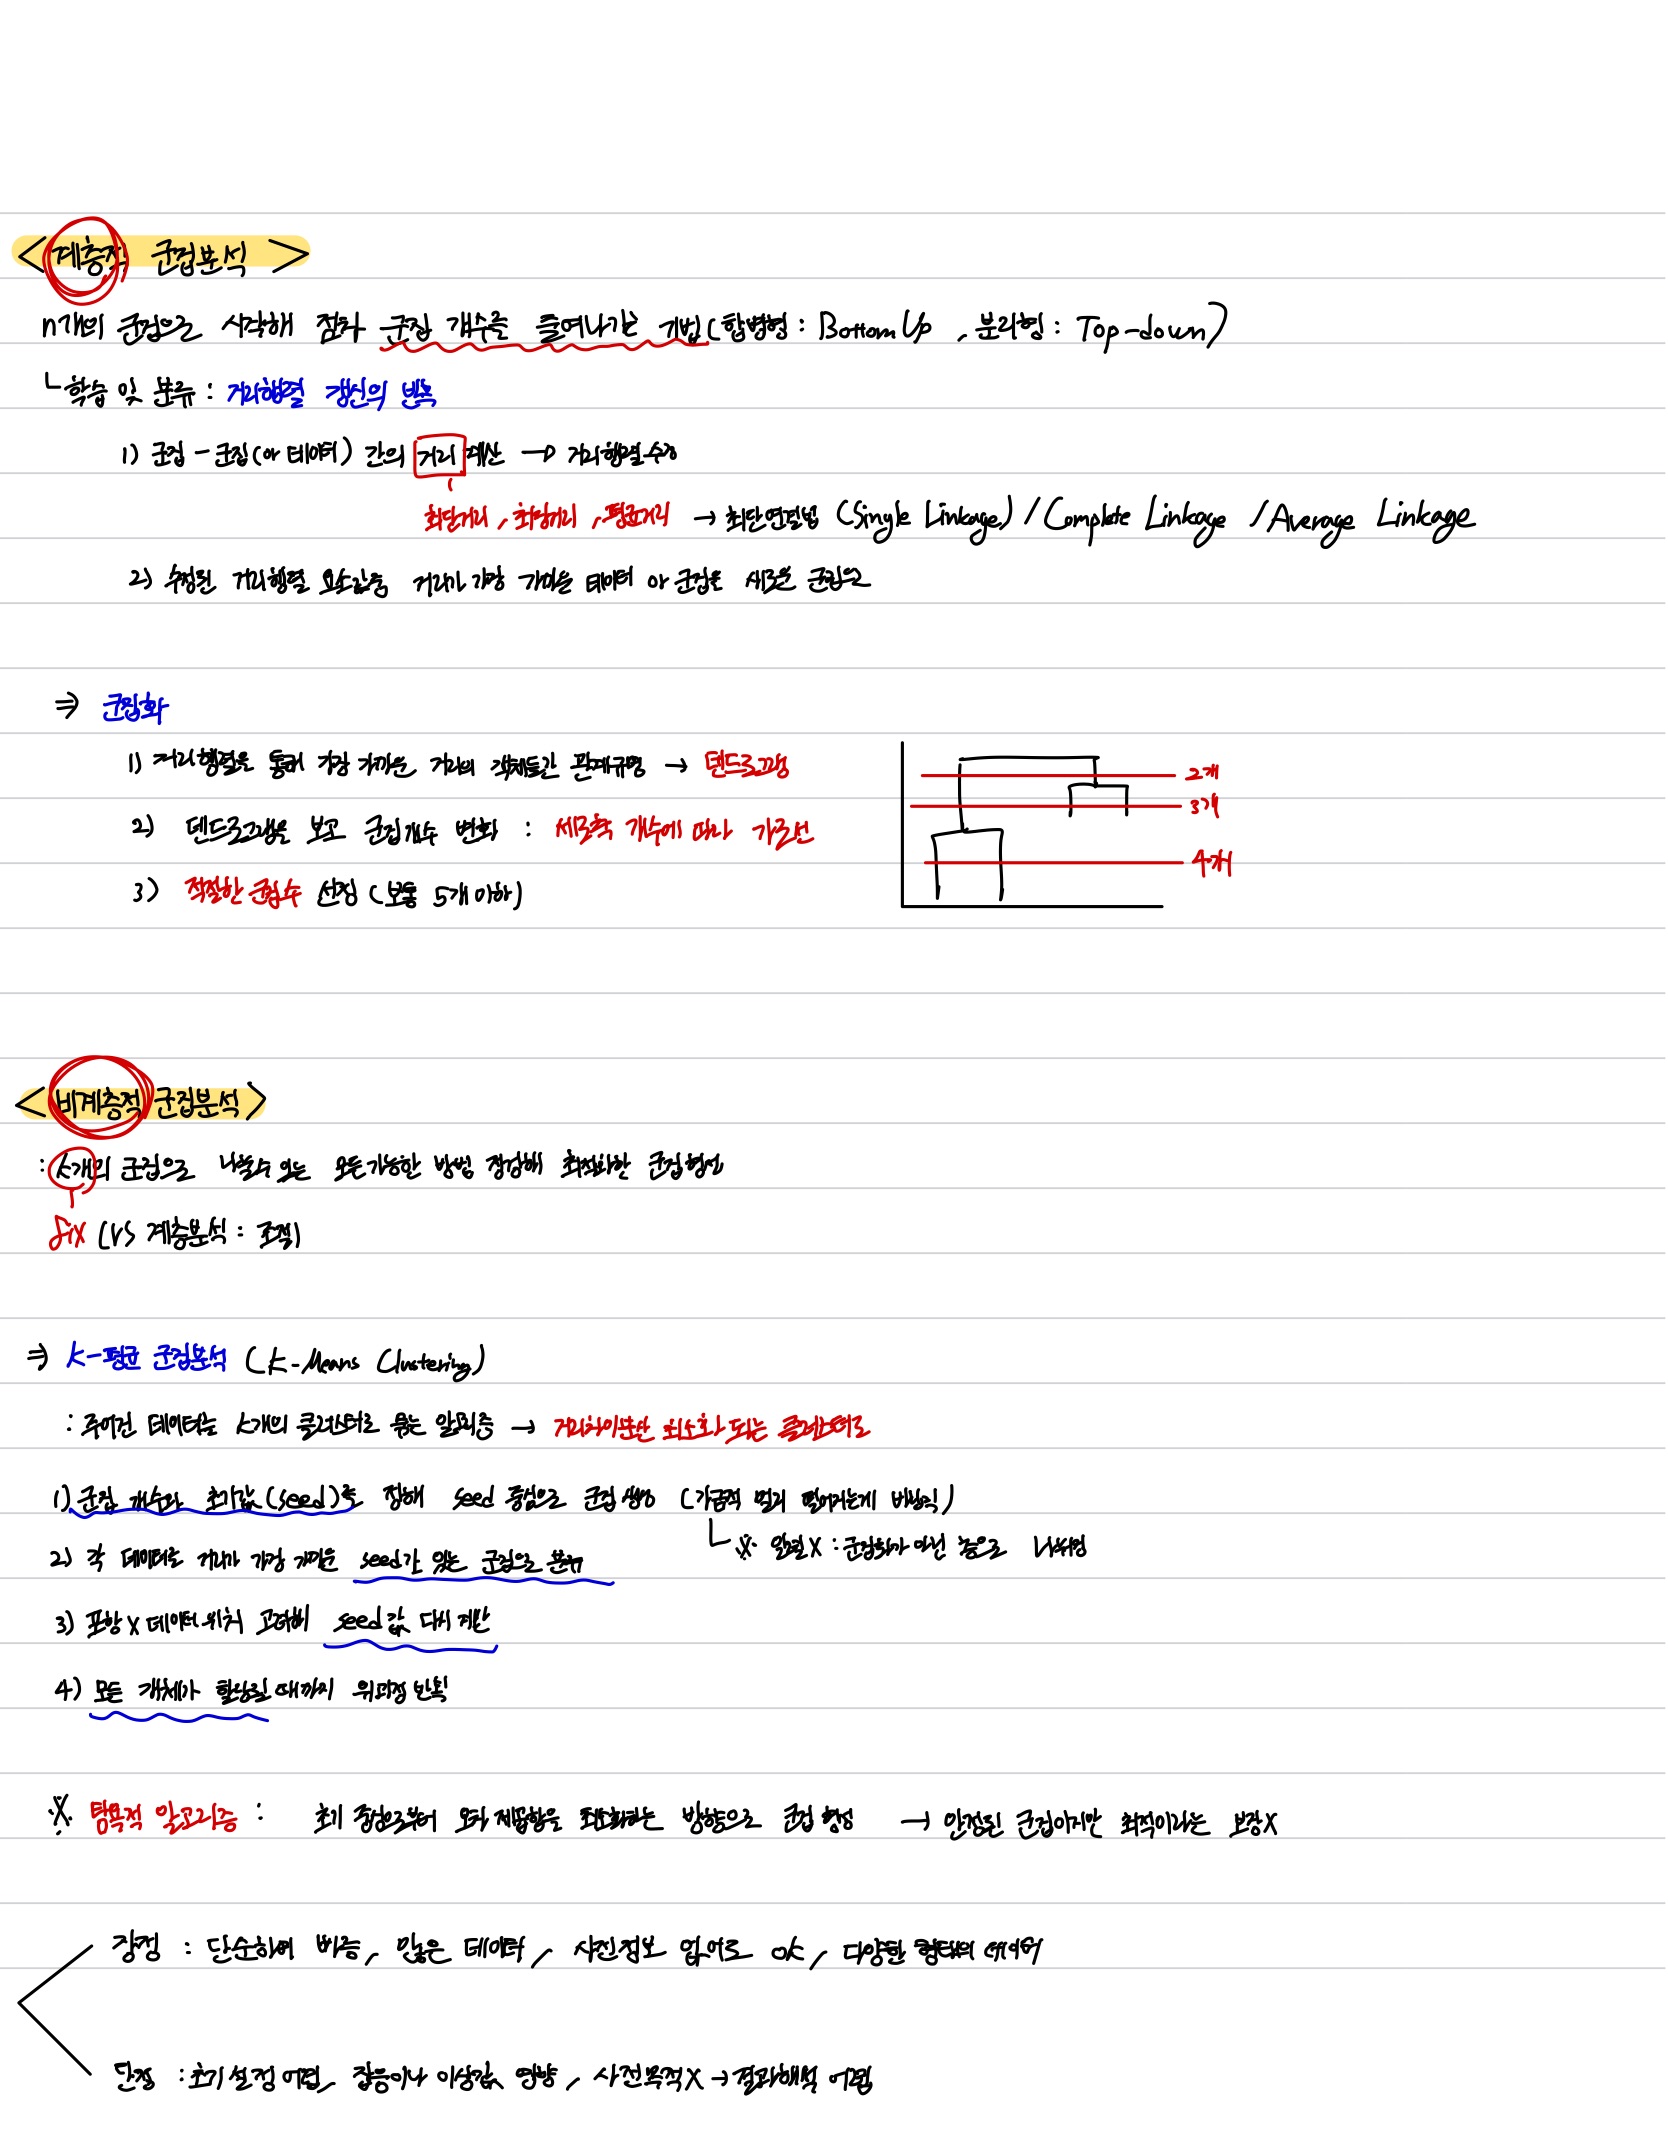 <계층적 군집분석>
n개의 군집으로 시작해 점차 군집 개수를 줄여나가는 기법(합병형: Bottom Up, 분리형: Top-down)
└학습 및 분류: 거리행렬 갱신의 반복
1) 군집 - 군집(or 데이터) 간의 거리 계산 → 거리행렬 수정
최단거리, 최장거리, 평균거리 → 최단연결법 (Single Linkage) / Complete Linkage / Average Linkage
2) 수정된 거리행렬 요소값중 거리가 가장 가까운 데이터 or 군집을 새로운 군집으로
⇒ 군집화
1) 거리행렬을 통해 가장 가까운 거리의 객체들간 관계규명 → 덴드로그램
2개
3개
2) 덴드로그램을 보고 군집개수 변화 : 세로축 개수에 따라 가로선
4개
3) 적절한 군집수 선정 (보통 5개 이하)
<비계층적 군집분석>
: K개의 군집으로 나눌수 있는 모든가능한 방법 점검해 최적화한 군집형성
fix (VS 계층분석 : 조절)
⇒ K-평균 군집분석 (K-Means Clustering)
: 주어진 데이터를 K개의 클러스터로 묶는 알고리즘 → 거리차이분산 최소화 되는 클러스터로
1) 군집 개수와 초기값(seed)을 정해 seed 중심으로 군집 생성 (가급적 멀리 떨어지는게 바람직)
└ ※ 일렬X : 군집화가 아닌 층으로 나뉘어짐
2) 각 데이터를 거리가 가장 가까운 seed가 있는 군집으로 분류
3) 포함 X 데이터 위치 고려해 seed 값 다시 계산
4) 모든 개체가 할당될 때까지 위과정 반복
※ 탐욕적 알고리즘 : 초기 중심으로부터 오차 제곱합을 최소화하는 방향으로 군집 형성 → 안정된 군집이지만 최적이라는 보장X
장점 : 단순하여 빠름, 많은 데이터, 사전정보 없어도 ok, 다양한 형태의 데이터
단점 : 초기 설정 어렵, 잡음이나 이상값 영향, 사전목적X → 결과해석 어렵